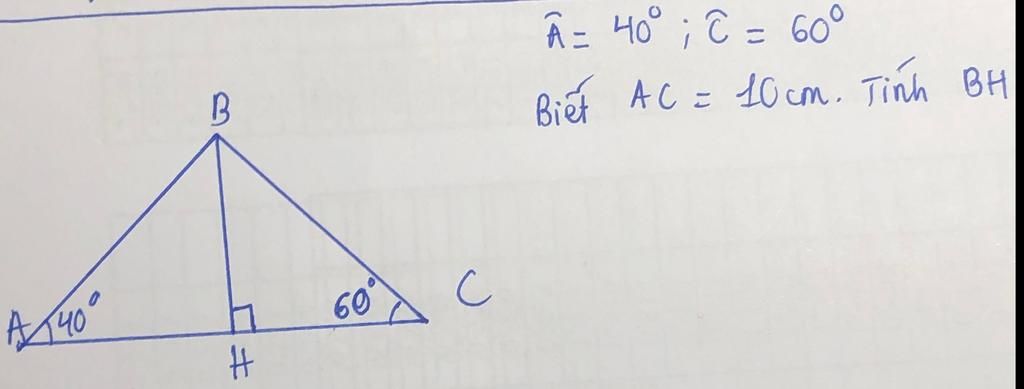 Â = 40° ; Ĉ = 60°
Biết AC = 10cm. Tính BH
B
A 40°
60° C
H